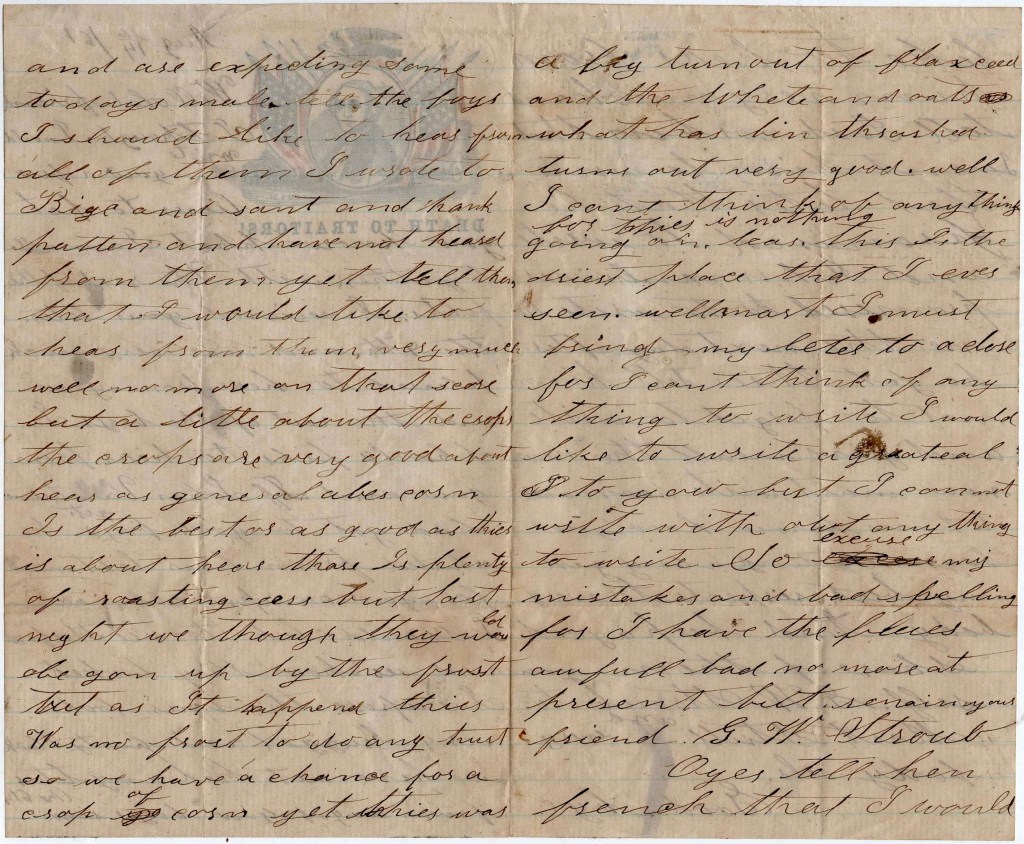 and are expecting some
todays male. tell. the boys
I should like to hear from
all of them I wrote to
Bige and sant and hank
patten and have not heard
from them yet tell them
that I would like to
hear from them very much
well no more on that score
but a little about the crops
the crops are very good about
hear as general abes corn
Is the best or as good as thies
is about hear thare Is plenty
of roasting eers but last
night we though they would
be gon up by the frost
but as It happend thies
Was no frost to do any hurt
so we have a chance for a
crop of corn yet thies was
a big turnout of flax ceed
and the White and oats
what has bin thrashed
turns out very good. well
I cant think of any thing
for thies is nothing
going on. hear. this Is the
driest place that I ever
seen. well mart I must
bring my letes to a close
for I cant think of any
thing to write I would
like to write a grateal
to you but I can not
write with out any thing
to write So excuse my
mistakes and bad spelling
for I have the blues
awfull bad no more at
present but. remain your
friend. G. W. Stroub
Oyes tell hen
french that I would
DEATH TO TRAITORS!